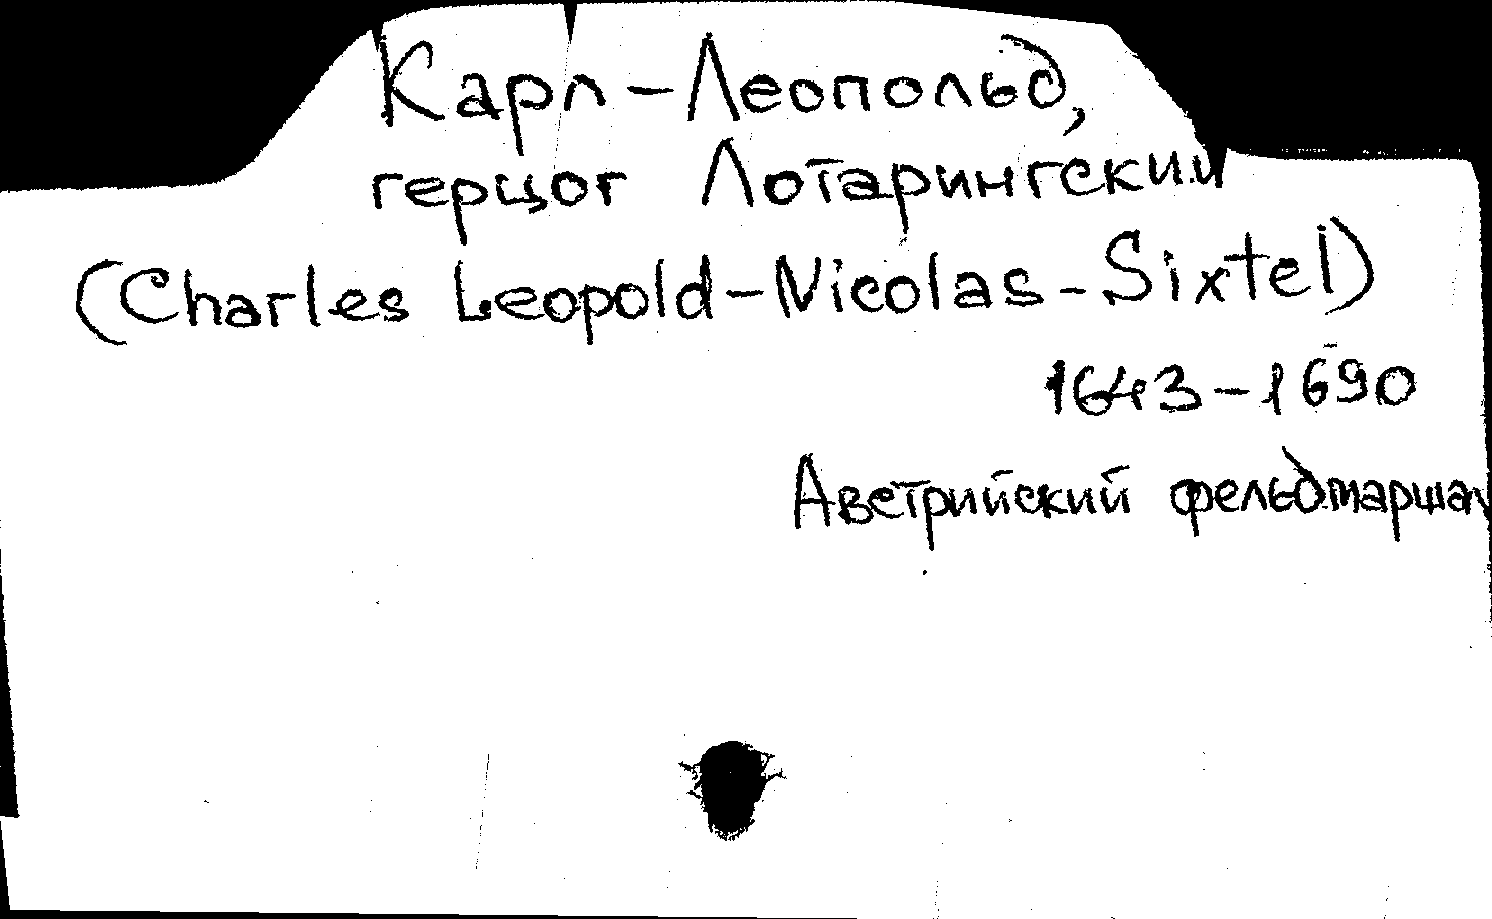 Карл-Леопольд,
герцог Лотарингский
(Charles Leopold-Nicolas-Sixtel)
1643-1690
Австрийский фельдмаршал